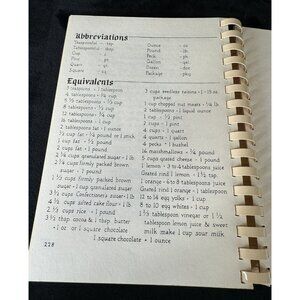 Abbreviations
Teaspoonful - tsp.
Tablespoonful - tbsp.
Cup
Pint - pt.
Quart - qt.
Square - sq.
Ounce - oz
Pound - lb.
Peck - pk.
Gallon - gal.
Dozen - doz
Package - pkg
Equivalents
3 teaspoons - 1 tablespoon
4 tablespoons - ¼ cup
5 ⅓ tablespoons - ⅓ cup
8 tablespoons - ½ cup
12 tablespoons - ¾ cup
16 tablespoons - 1 cup
2 tablespoons fat - 1 ounce
2 cups fat - 1 pound
2 cups granulated sugar - 1 lb.
2 ¼ cups firmly packed brown
sugar - 1 cup granulated sugar
3 ½ cups Confectioners sugar - 1 lb.
4 ½ cups sifted cake flour - 1 lb.
2 ⅓ cups rice - 1 pound
3 ½ tbsp. cocoa & 1 tbsp. butter
- 1 oz. or 1 square chocolate
1 square chocolate - 1 ounce
3 cups seedless raisins - 1 - 15 oz.
package
1 cup chopped nut meats - ¼ lb.
2 tablespoons - 1 liquid ounce
1 cup - ½ pint
2 cups - 1 pint
4 cups - 1 quart
4 quarts - 1 gallon
4 pecks - 1 bushel
16 marshmallows - ¼ pound
5 cups grated cheese - 1 pound
1 lemon - 3 to 4 tablespoons
Grated rind 1 lemon - 1 tablespoon
1 orange - 6 to 8 tablespoons
Grated rind 1 orange - 1 tablespoon
12 to 14 egg yolks - 1 cup
8 to 10 egg whites - 1 cup
1 ⅓ tablespoon vinegar or 1 ½
tablespoon lemon juice & sweet
milk to make 1 cup sour milk
228